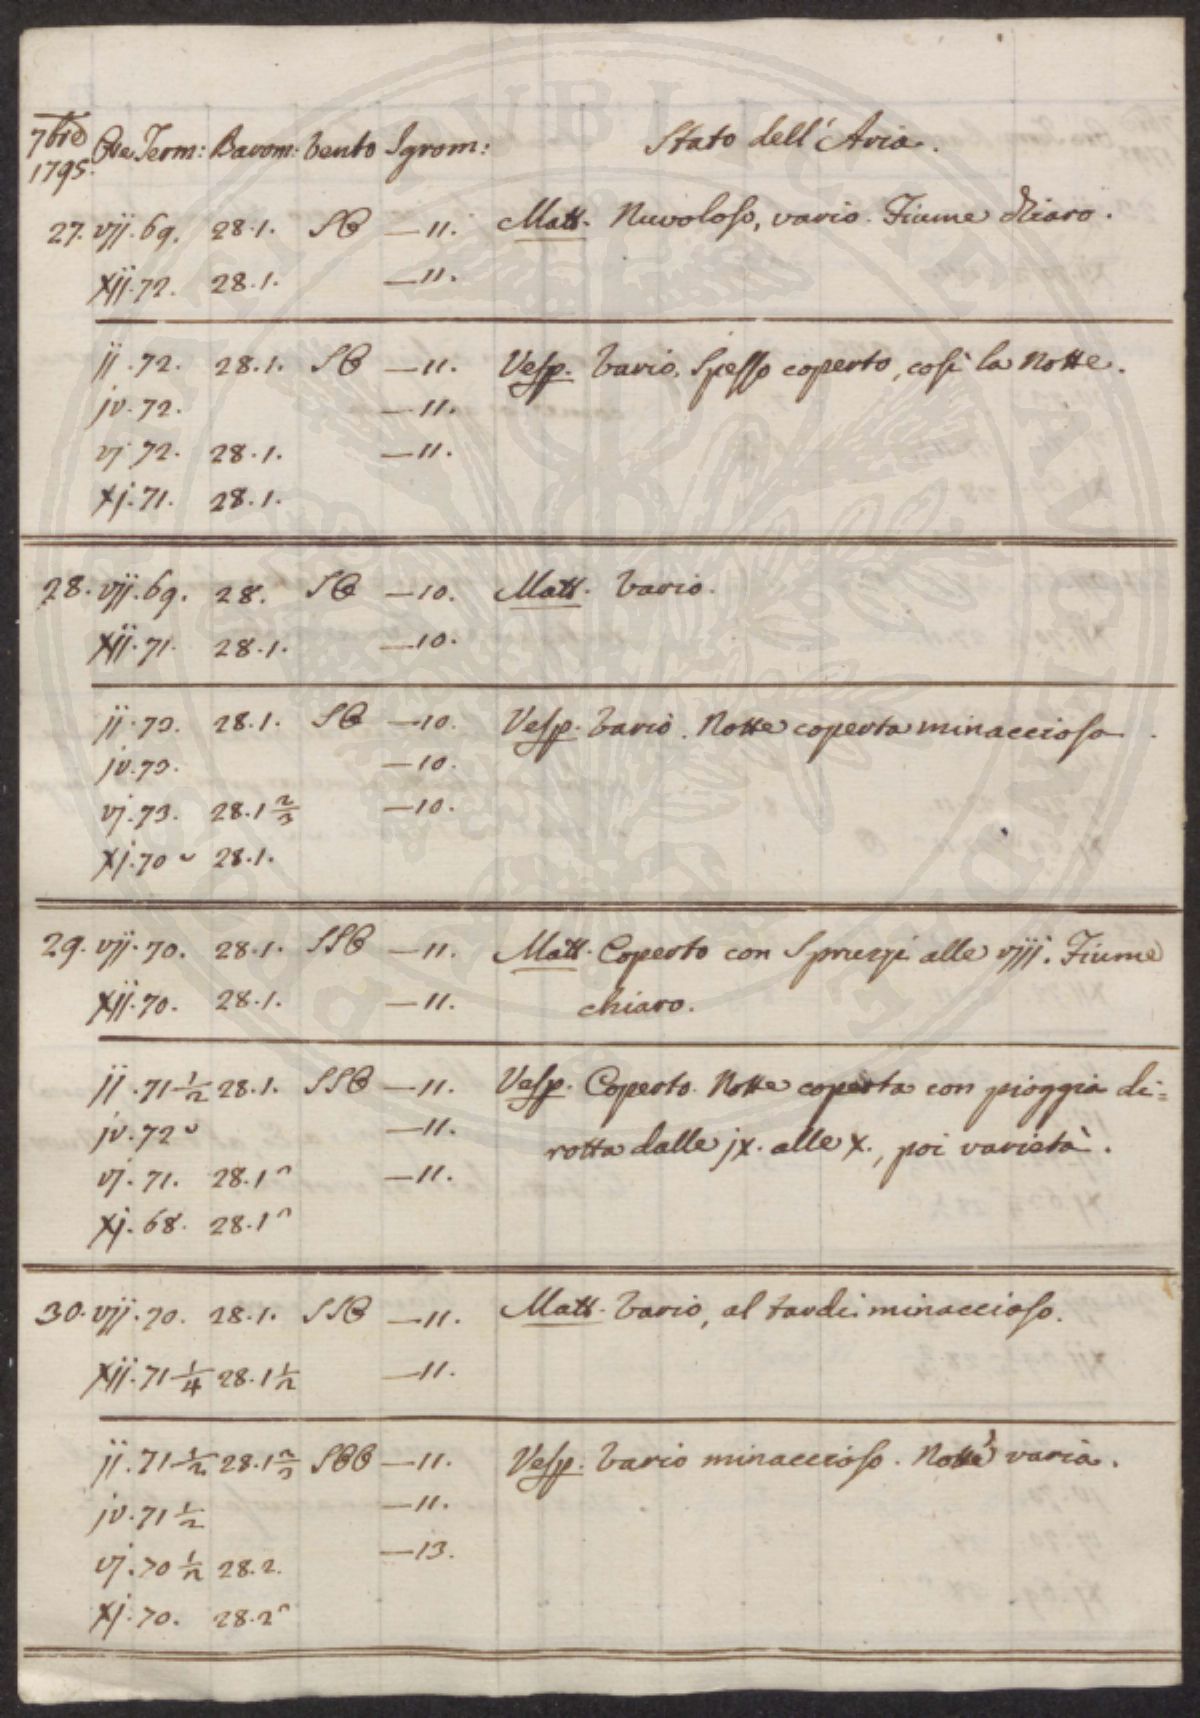 7bre
1795. Ore Term: Barom: Vento Igrom: Stato dell'Aria.
27. vij. 69. 28.1. SO —11. Matt. Nuvoloso, vario. Fiume chiaro.
xij. 72. 28.1. —11.
ij. 72. 28.1. SO —11. Vesp. Vario. Spesso coperto, così la Notte.
iv. 72. —11.
vj. 72. 28.1. —11.
xj. 71. 28.1.
28. vij. 69. 28. SO —10. Matt. Vario.
xij. 71. 28.1. —10.
ij. 73. 28.1. SO —10. Vesp. Vario. Notte coperta minacciosa
iv. 73. —10.
vj. 73. 28.1 2/3 —10.
xj. 70 ᵕ 28.1.
29. vij. 70. 28.1. SSO —11. Matt. Coperto con Spruzzi alle viij. Fiume
xij. 70. 28.1. —11. chiaro.
ij. 71 1/2 28.1. SSO —11. Vesp. Coperto. Notte coperta con pioggia di=
iv. 72 ᵕ —11. rotta dalle ix. alle x., poi varietà.
vj. 71. 28.1 ᵔ —11.
xj. 68. 28.1 ᵔ
30. vij. 70. 28.1. SSO —11. Matt. Vario, al tardi minaccioso.
xij. 71 1/4 28.1 1/2 —11.
ij. 71 1/2 28.1 2/3 SOO —11. Vesp. Vario minaccioso. Notte varia.
iv. 71 1/2 —11.
vj. 70 1/2 28.2. —13.
xj. 70. 28.2 ᵔ